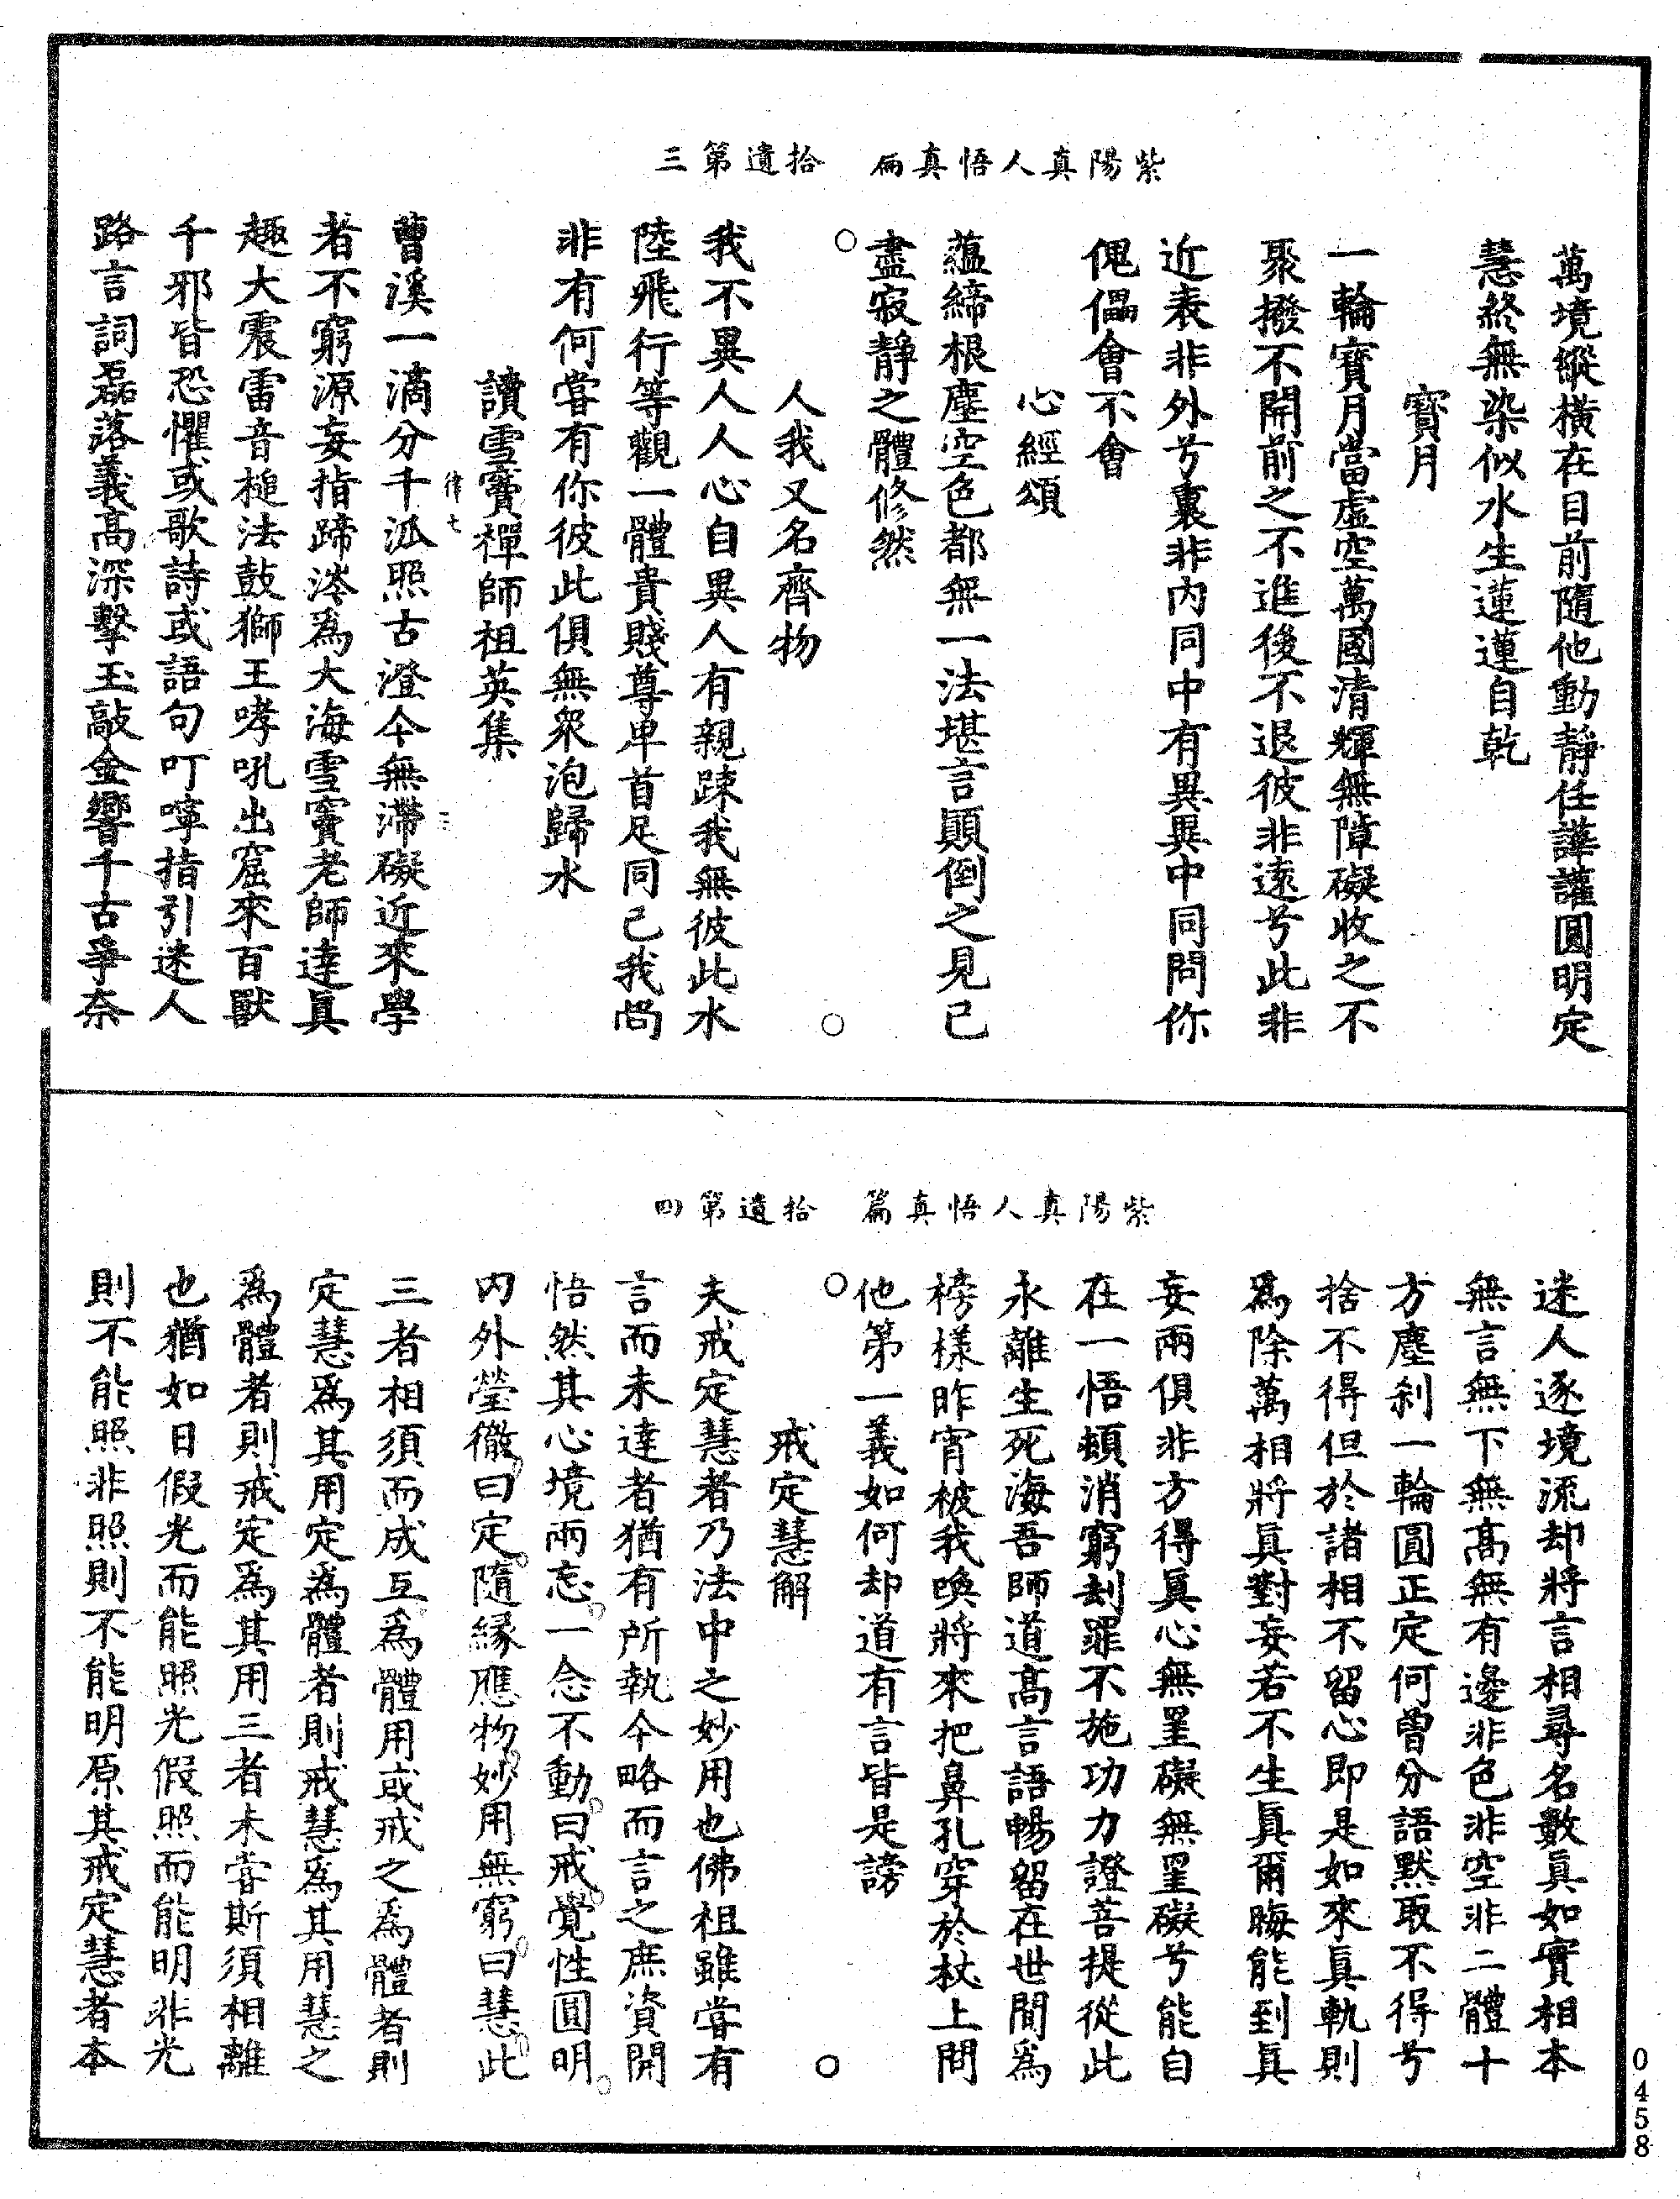 紫陽真人悟真篇　拾遺第三
萬境縱橫在目前隨他動靜任譁讙圓明定
慧終無染似水生蓮蓮自乾
寶月
一輪寶月當虛空萬國清輝無障礙收之不
聚撥不開前之不進後不退彼非遠兮此非
近表非外兮裏非內同中有異異中同問你
傀儡會不會
心經頌
蘊締根塵空色都無一法堪言顚倒之見已
盡寂靜之體翛然
人我又名齊物
我不異人人心自異人有親踈我無彼此水
陸飛行等觀一體貴賤尊卑首足同己我尚
非有何嘗有你彼此俱無衆泡歸水
讀雪竇禪師祖英集
曹溪一滴分千派照古澄今無滯礙近來學
者不窮源妄指蹄涔爲大海雪竇老師達眞
趣大震雷音槌法鼓獅王哮吼出窟來百獸
千邪皆恐懼或歌詩或語句叮嚀指引迷人
路言詞磊落義高深擊玉敲金響千古爭奈
紫陽真人悟真篇　拾遺第四
迷人逐境流却將言相尋名數眞如實相本
無言無下無高無有邊非色非空非二體十
方塵刹一輪圓正定何曾分語默取不得兮
捨不得但於諸相不留心即是如來眞軌則
爲除萬相將眞對妄若不生眞爾晦能到眞
妄兩俱非方得眞心無罣礙無罣礙兮能自
在一悟頓消窮刦罪不施功力證菩提從此
永離生死海吾師道高言語暢留在世間爲
榜樣昨宵被我喚將來把鼻孔穿於杖上問
他第一義如何却道有言皆是謗
戒定慧解
夫戒定慧者乃法中之妙用也佛祖雖嘗有
言而未達者猶有所執今略而言之庶資開
悟然其心境兩忘一念不動曰戒覺性圓明
內外瑩徹曰定隨緣應物妙用無窮曰慧此
三者相須而成互爲體用或戒之爲體者則
定慧爲其用定爲體者則戒慧爲其用慧之
爲體者則戒定爲其用三者未嘗斯須相離
也猶如日假光而能照光假照而能明非光
則不能照非照則不能明原其戒定慧者本
0458